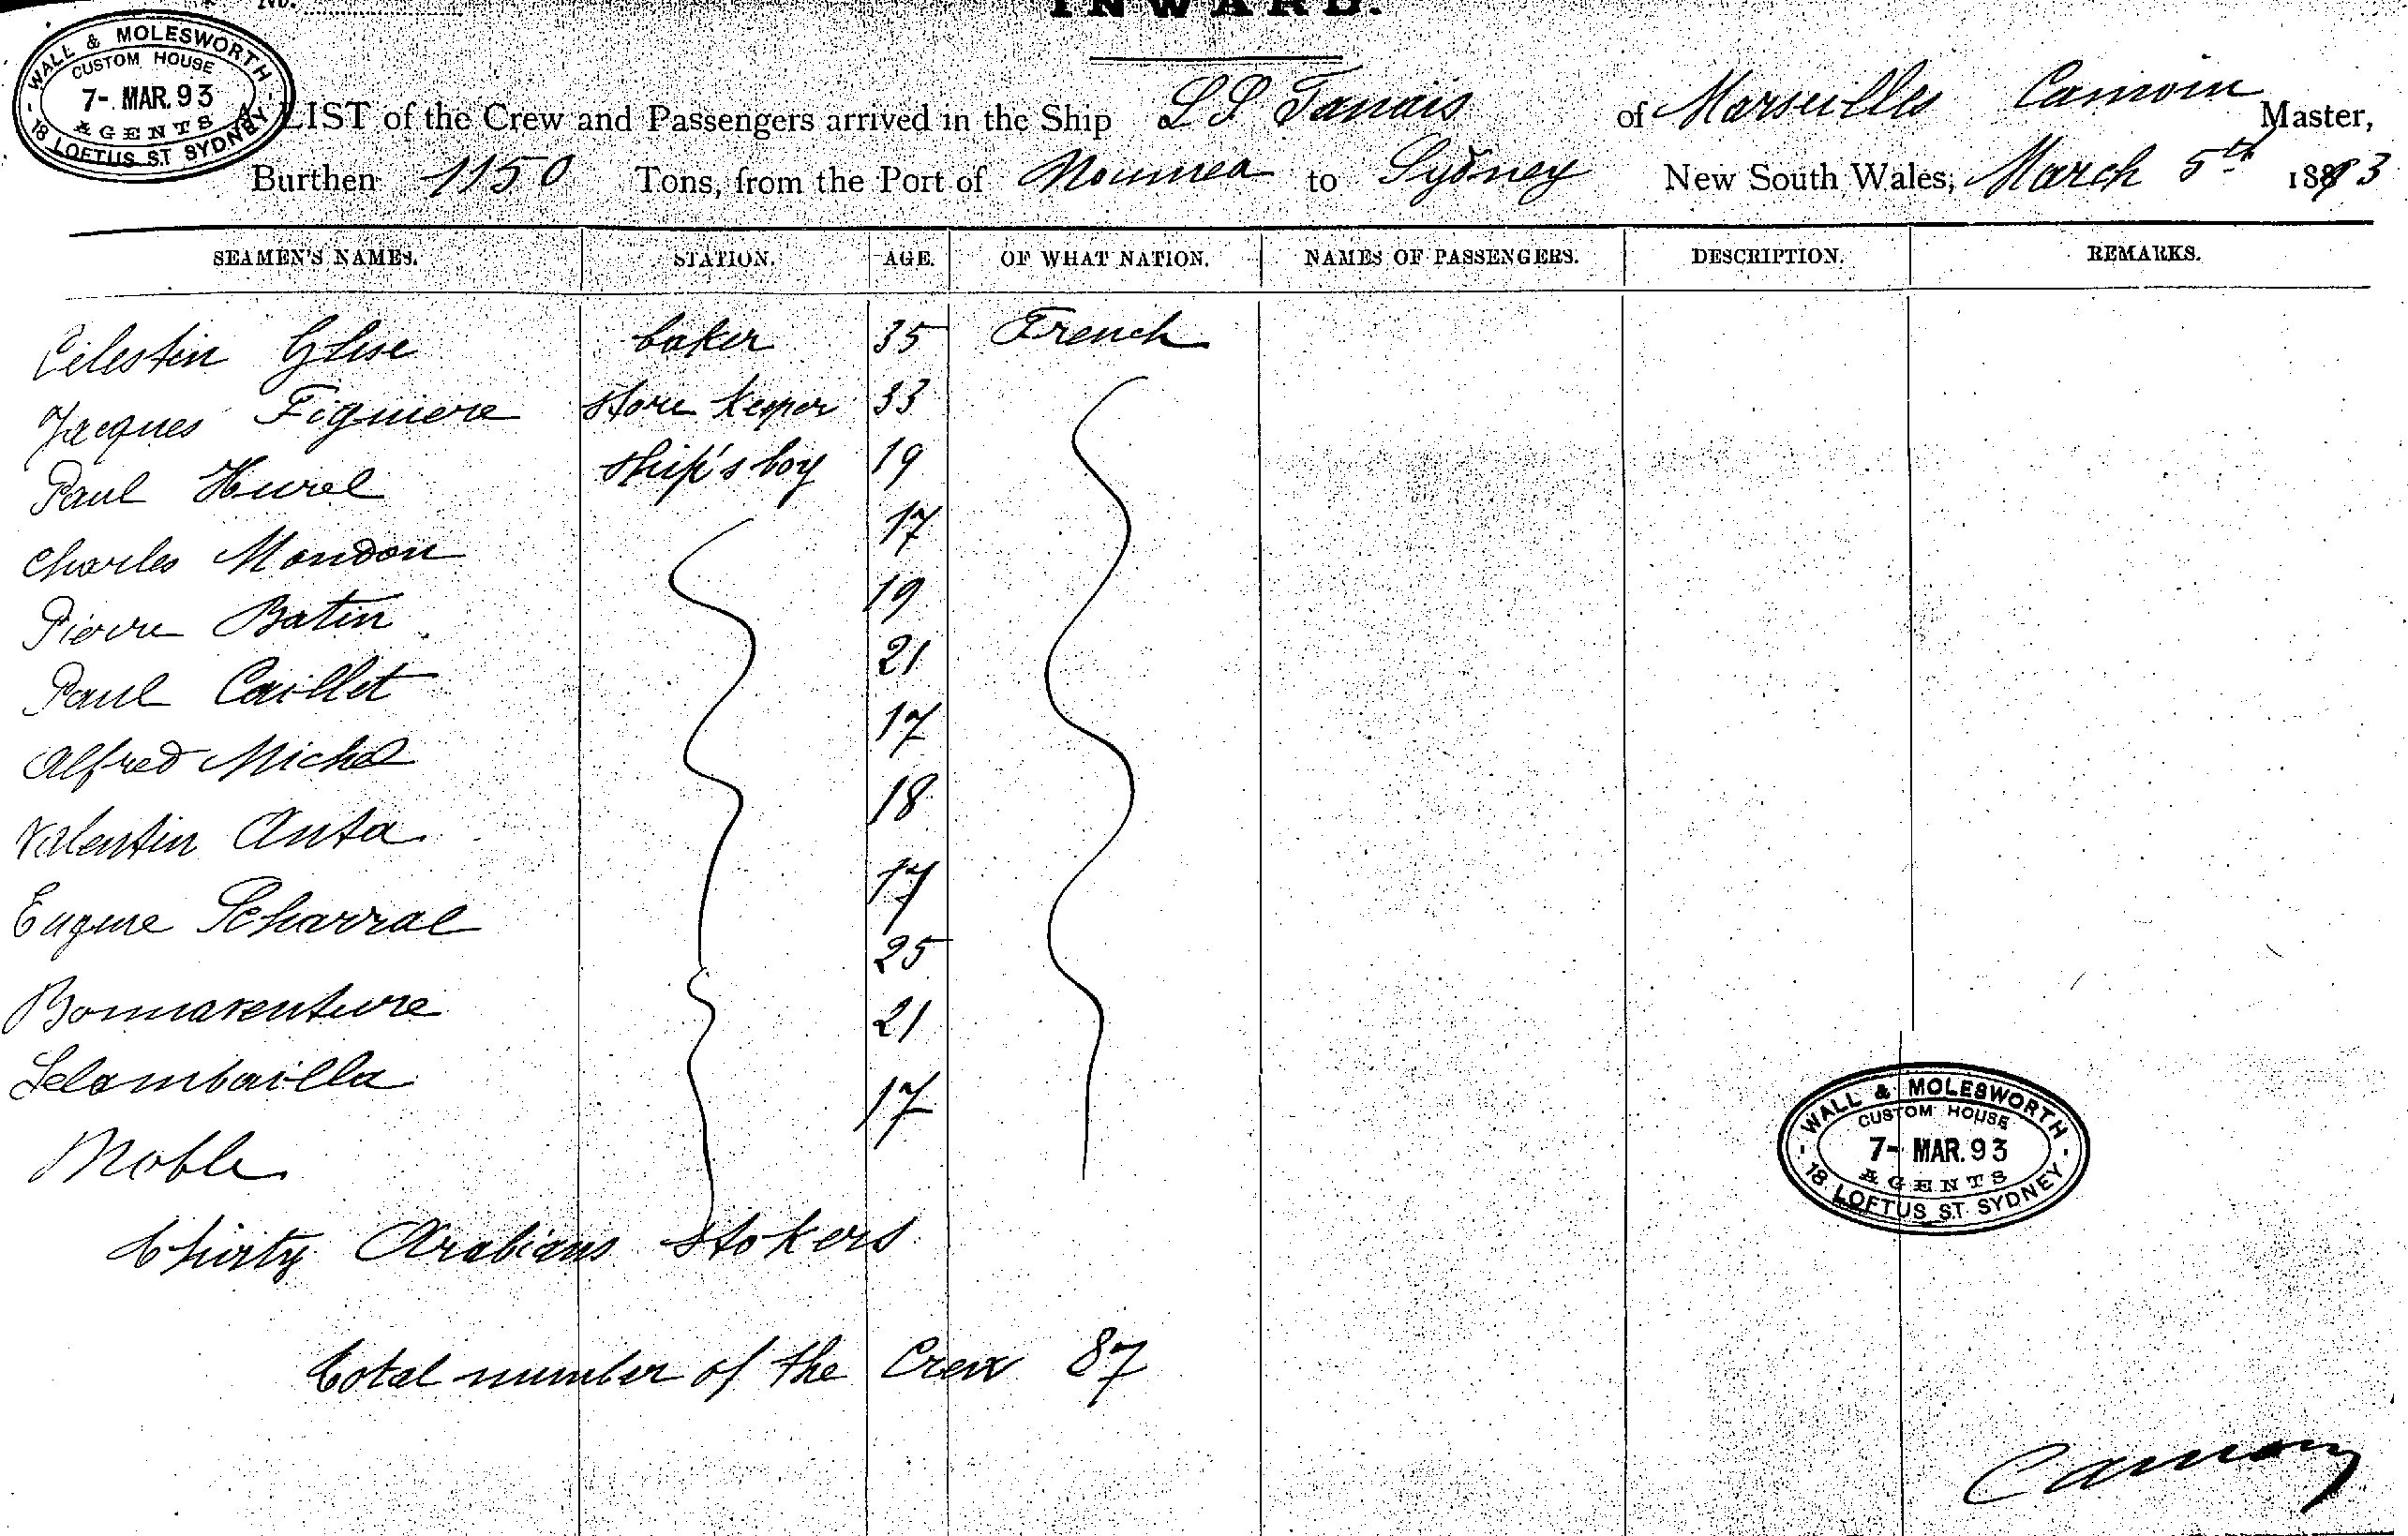 No.
INWARD.
WALL & MOLESWORTH
CUSTOM HOUSE
7- MAR. 93
AGENTS
18 LOFTUS ST SYDNEY
A LIST of the Crew and Passengers arrived in the Ship SS Tanais of Marseilles Camoin Master,
Burthen 1150 Tons, from the Port of Noumea to Sydney New South Wales, March 5th 1893
SEAMEN'S NAMES. STATION. AGE. OF WHAT NATION. NAMES OF PASSENGERS. DESCRIPTION. REMARKS.
Celestin Glise baker 35 French
Jacques Figuiere store keeper 33
Paul Hurel ship's boy 19
Charles Mondon 17
Pierre Batin 19
Paul Caillet 21
Alfred Michel 17
Valentin Anta 18
Eugene Scharral 17
Bonnaventure 25
Lelambailla 21
Noble 17
thirty Arabians stokers
total number of the Crew 87
WALL & MOLESWORTH
CUSTOM HOUSE
7- MAR. 93
AGENTS
18 LOFTUS ST SYDNEY
Camoin